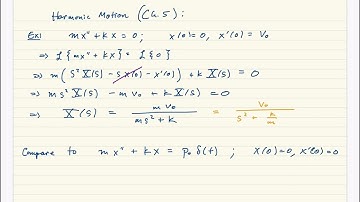 Harmonic Motion (Ch 5):
Ex1 mx" + kx = 0; x(0)=0, x'(0) = V₀
⇒ L{mx" + kx} = L{0}
⇒ m(s²X(s) - sx(0) - x'(0)) + kX(s) = 0
⇒ ms²X(s) - mv₀ + kX(s) = 0
⇒ X(s) = mv₀ / (ms² + k) = v₀ / (s² + k/m)
Compare to mx" + kx = p₀ δ(t); x(0)=0, x'(0)=0